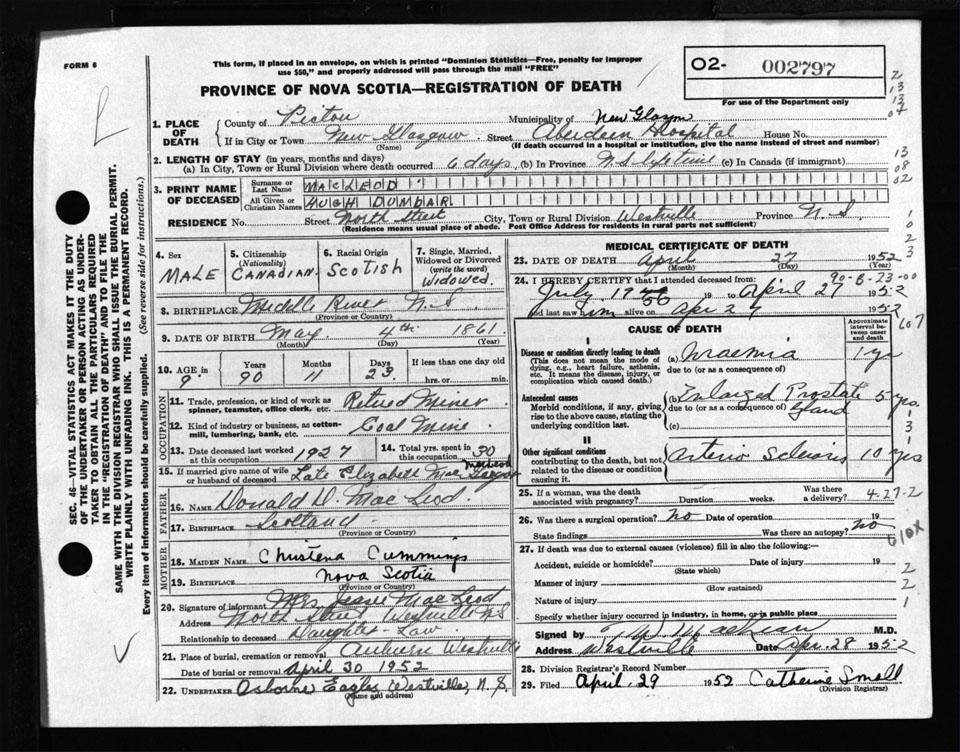 FORM 6
This form, if placed in an envelope, on which is printed "Dominion Statistics—Free, penalty for improper
use $50," and properly addressed will pass through the mail "FREE"
O2- 002797
For use of the Department only
PROVINCE OF NOVA SCOTIA—REGISTRATION OF DEATH
SEC. 46—VITAL STATISTICS ACT MAKES IT THE DUTY
OF THE UNDERTAKER OR PERSON ACTING AS UNDER-
TAKER TO OBTAIN ALL THE PARTICULARS REQUIRED
IN THE "REGISTRATION OF DEATH" AND TO FILE THE
SAME WITH THE DIVISION REGISTRAR WHO SHALL ISSUE THE BURIAL PERMIT.
WRITE PLAINLY WITH UNFADING INK. THIS IS A PERMANENT RECORD.
Every item of information should be carefully supplied. (See reverse side for instructions.)
1. PLACE OF DEATH
County of Pictou Municipality of New Glasgow
If in City or Town New Glasgow Street Aberdeen Hospital House No.
(Name) (If death occurred in a hospital or institution, give the name instead of street and number)
2. LENGTH OF STAY (in years, months and days)
(a) In City, Town or Rural Division where death occurred 6 days (b) In Province N.S. lifetime (c) In Canada (if immigrant)
3. PRINT NAME OF DECEASED
Surname or Last Name MACLEOD
All Given or Christian Names HUGH DUNBAR
RESIDENCE No. Street North Street City, Town or Rural Division Westville Province N.S
(Residence means usual place of abode. Post Office Address for residents in rural parts not sufficient)
4. Sex MALE
5. Citizenship (Nationality) CANADIAN.
6. Racial Origin Scotish
7. Single, Married, Widowed or Divorced (write the word) Widowed.
8. BIRTHPLACE Middle River N.S
(Province or Country)
9. DATE OF BIRTH May 4th 1861
(Month) (Day) (Year)
10. AGE in Years 90 Months 11 Days 23 If less than one day old hrs. or min.
OCCUPATION
11. Trade, profession, or kind of work as
spinner, teamster, office clerk, etc. Retired Miner
12. Kind of industry or business, as cotton-
mill, lumbering, bank, etc. Coal Mine
13. Date deceased last worked at this occupation 1927
14. Total yrs. spent in this occupation 30
15. If married give name of wife
or husband of deceased Late Elizabeth MacLeod
FATHER
16. NAME Donald D. MacLeod
17. BIRTHPLACE Scotland
(Province or Country)
MOTHER
18. MAIDEN NAME Christena Cummings
19. BIRTHPLACE Nova Scotia
(Province or Country)
20. Signature of informant Mrs Jessie MacLeod
Address North Street Westville N.S
Relationship to deceased Daughter-Law
21. Place of burial, cremation or removal Auburn Westville
Date of burial or removal April 30 1952
22. UNDERTAKER Osborne Eagles Westville, N.S.
(Name and address)
MEDICAL CERTIFICATE OF DEATH
23. DATE OF DEATH April 27 1952
(Month) (Day) (Year)
24. I HEREBY CERTIFY that I attended deceased from:
July 19 50 19 to April 27 1952
and last saw him alive on Apr 27 1952
90-B-23-00
CAUSE OF DEATH
Approximate interval between onset and death
I
Disease or condition directly leading to death
(This does not mean the mode of
dying, e.g., heart failure, asthenia,
etc. It means the disease, injury, or
complication which caused death.)
(a) Uraemia 1 yr
due to (or as a consequence of)
Antecedent causes
Morbid conditions, if any, giving
rise to the above cause, stating the
underlying condition last.
(b) Enlarged Prostate gland 5 yrs.
due to (or as a consequence of)
(c)
II
Other significant conditions
contributing to the death, but not
related to the disease or condition
causing it.
Arterio Sclerosis 10 yrs
25. If a woman, was the death
associated with pregnancy? Duration weeks. Was there a delivery? 4-27-2
26. Was there a surgical operation? No Date of operation 19
State findings Was there an autopsy? No
610X
27. If death was due to external causes (violence) fill in also the following:—
Accident, suicide or homicide? Date of injury 19
(State which)
Manner of injury
(How sustained)
Nature of injury
Specify whether injury occurred in industry, in home, or in public place
Signed by M.D.
Address Westville Date Apr. 28 1952
28. Division Registrar's Record Number
29. Filed April 29 1952 Catherine Small
(Division Registrar)